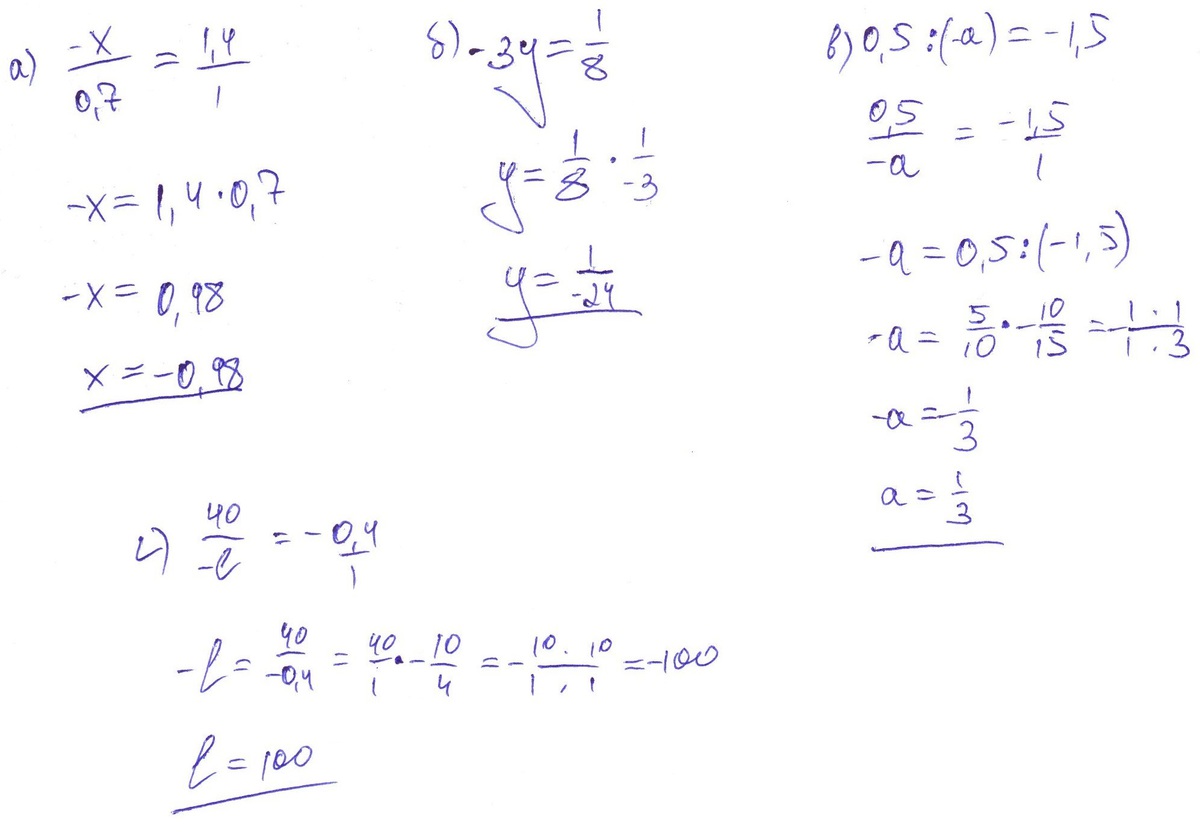 а) -x/0,7 = 1,4/1
-x = 1,4 · 0,7
-x = 0,98
x = -0,98
б) -3y = 1/8
y = 1/8 · 1/-3
y = 1/-24
в) 0,5 : (-a) = -1,5
0,5/-a = -1,5/1
-a = 0,5 : (-1,5)
-a = 5/10 · -10/15 = -1·1/1·3
-a = -1/3
a = 1/3
г) 40/-b = -0,4/1
-b = 40/-0,4 = 40/1 · -10/4 = -10·10/1·1 = -100
b = 100